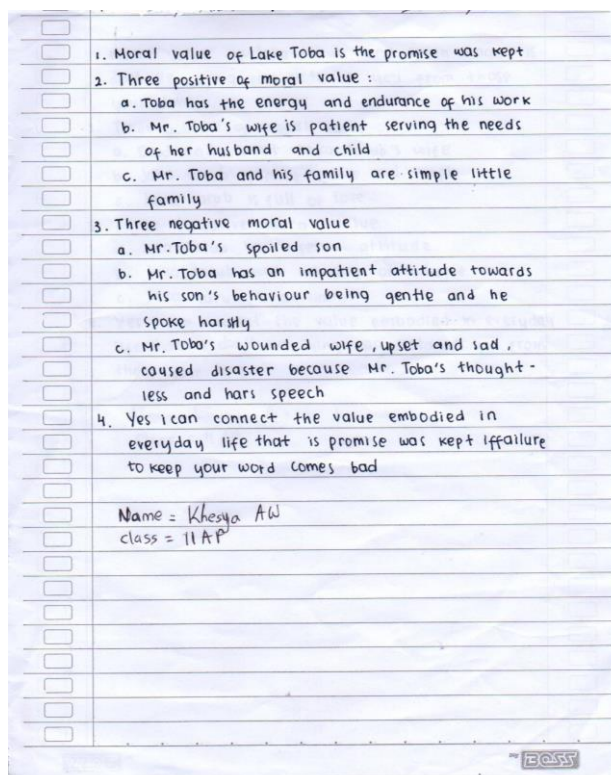 1. Moral value of Lake Toba is the promise was kept
2. Three positive of moral value :
a. Toba has the energy and endurance of his work
b. Mr. Toba's wife is patient serving the needs
of her husband and child
c. Mr. Toba and his family are simple little
family
3. Three negative moral value
a. Mr.Toba's spoiled son
b. Mr. Toba has an impatient attitude towards
his son's behaviour being gentle and he
spoke harshly
c. Mr. Toba's wounded wife, upset and sad,
caused disaster because Mr. Toba's thought-
less and hars speech
4. Yes i can connect the value embodied in
everyday life that is promise was kept iffailure
to keep your word comes bad
Name = Khesya AW
class = 11 AP
BOSS